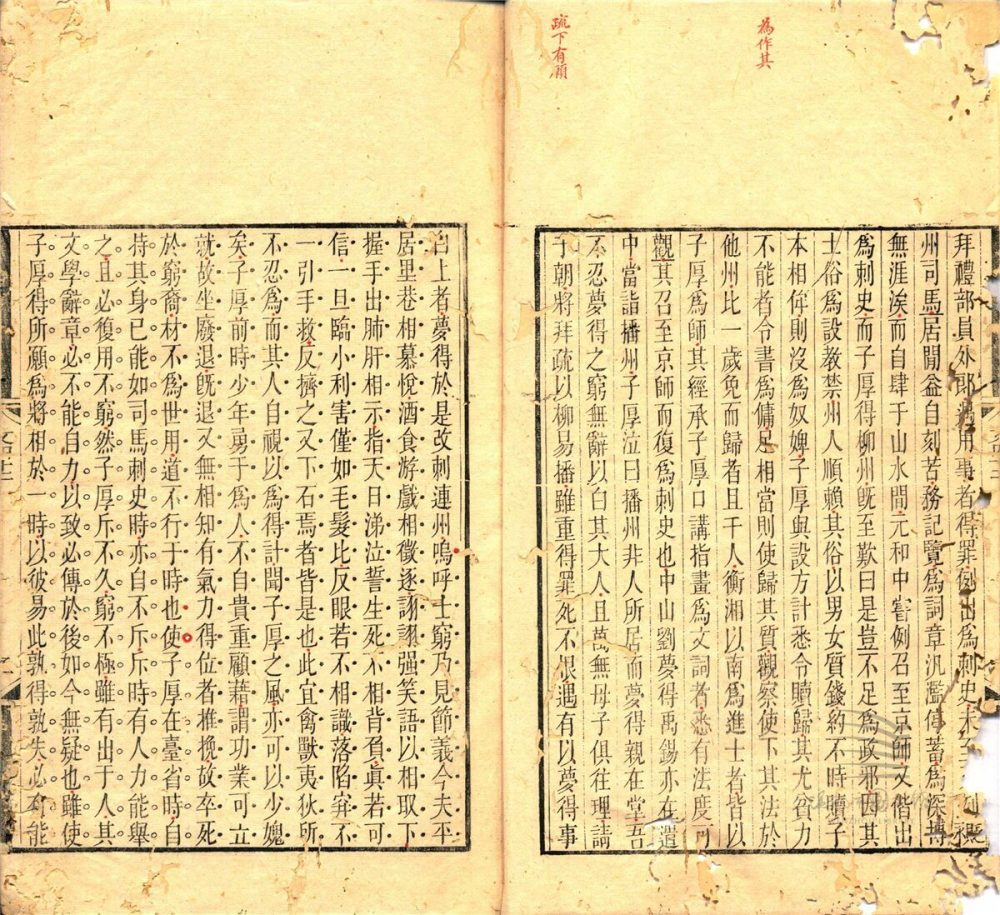 爲作其
疏下有願
拜禮部員外郎遇用事者得罪例出爲刺史未例貶
州司馬居閒益自刻苦務記覽爲詞章汎濫停蓄爲深博
無涯涘而自肆于山水閒元和中嘗例召至京師又偕出
爲刺史而子厚得柳州旣至歎曰是豈不足爲政邪因其
土俗爲設教禁州人順賴其俗以男女質錢約不時贖子
本相侔則沒爲奴婢子厚與設方計悉令贖歸其尤貧力
不能者令書爲傭足相當則使歸其質觀察使下其法於
他州比一歲免而歸者且千人衡湘以南爲進士者皆以
子厚爲師其經承子厚口講指畫爲文詞者悉有法度可
觀其召至京師而復爲刺史也中山劉夢得禹錫亦在遣
中當詣播州子厚泣曰播州非人所居而夢得親在堂吾
不忍夢得之窮無辭以白其大人且萬無母子俱往理請
于朝將拜疏以柳易播雖重得罪死不恨遇有以夢得事
白上者夢得於是改刺連州嗚呼士窮乃見節義今夫平
居里巷相慕悅酒食游戲相徵逐詡詡强笑語以相取下
握手出肺肝相示指天日涕泣誓生死不相背負真若可
信一旦臨小利害僅如毛髮比反眼若不相識落陷穽不
一引手救反擠之又下石焉者皆是也此宜禽獸夷狄所
不忍爲而其人自視以爲得計聞子厚之風亦可以少媿
矣子厚前時少年勇于爲人不自貴重顧藉謂功業可立
就故坐廢退旣退又無相知有氣力得位者推挽故卒死
於窮裔材不爲世用道不行于時也使子厚在臺省時自
持其身已能如司馬刺史時亦自不斥斥時有人力能舉
之且必復用不窮然子厚斥不久窮不極雖有出于人其
文學辭章必不能自力以致必傳於後如今無疑也雖使
子厚得所願爲將相於一時以彼易此孰得孰失必有能